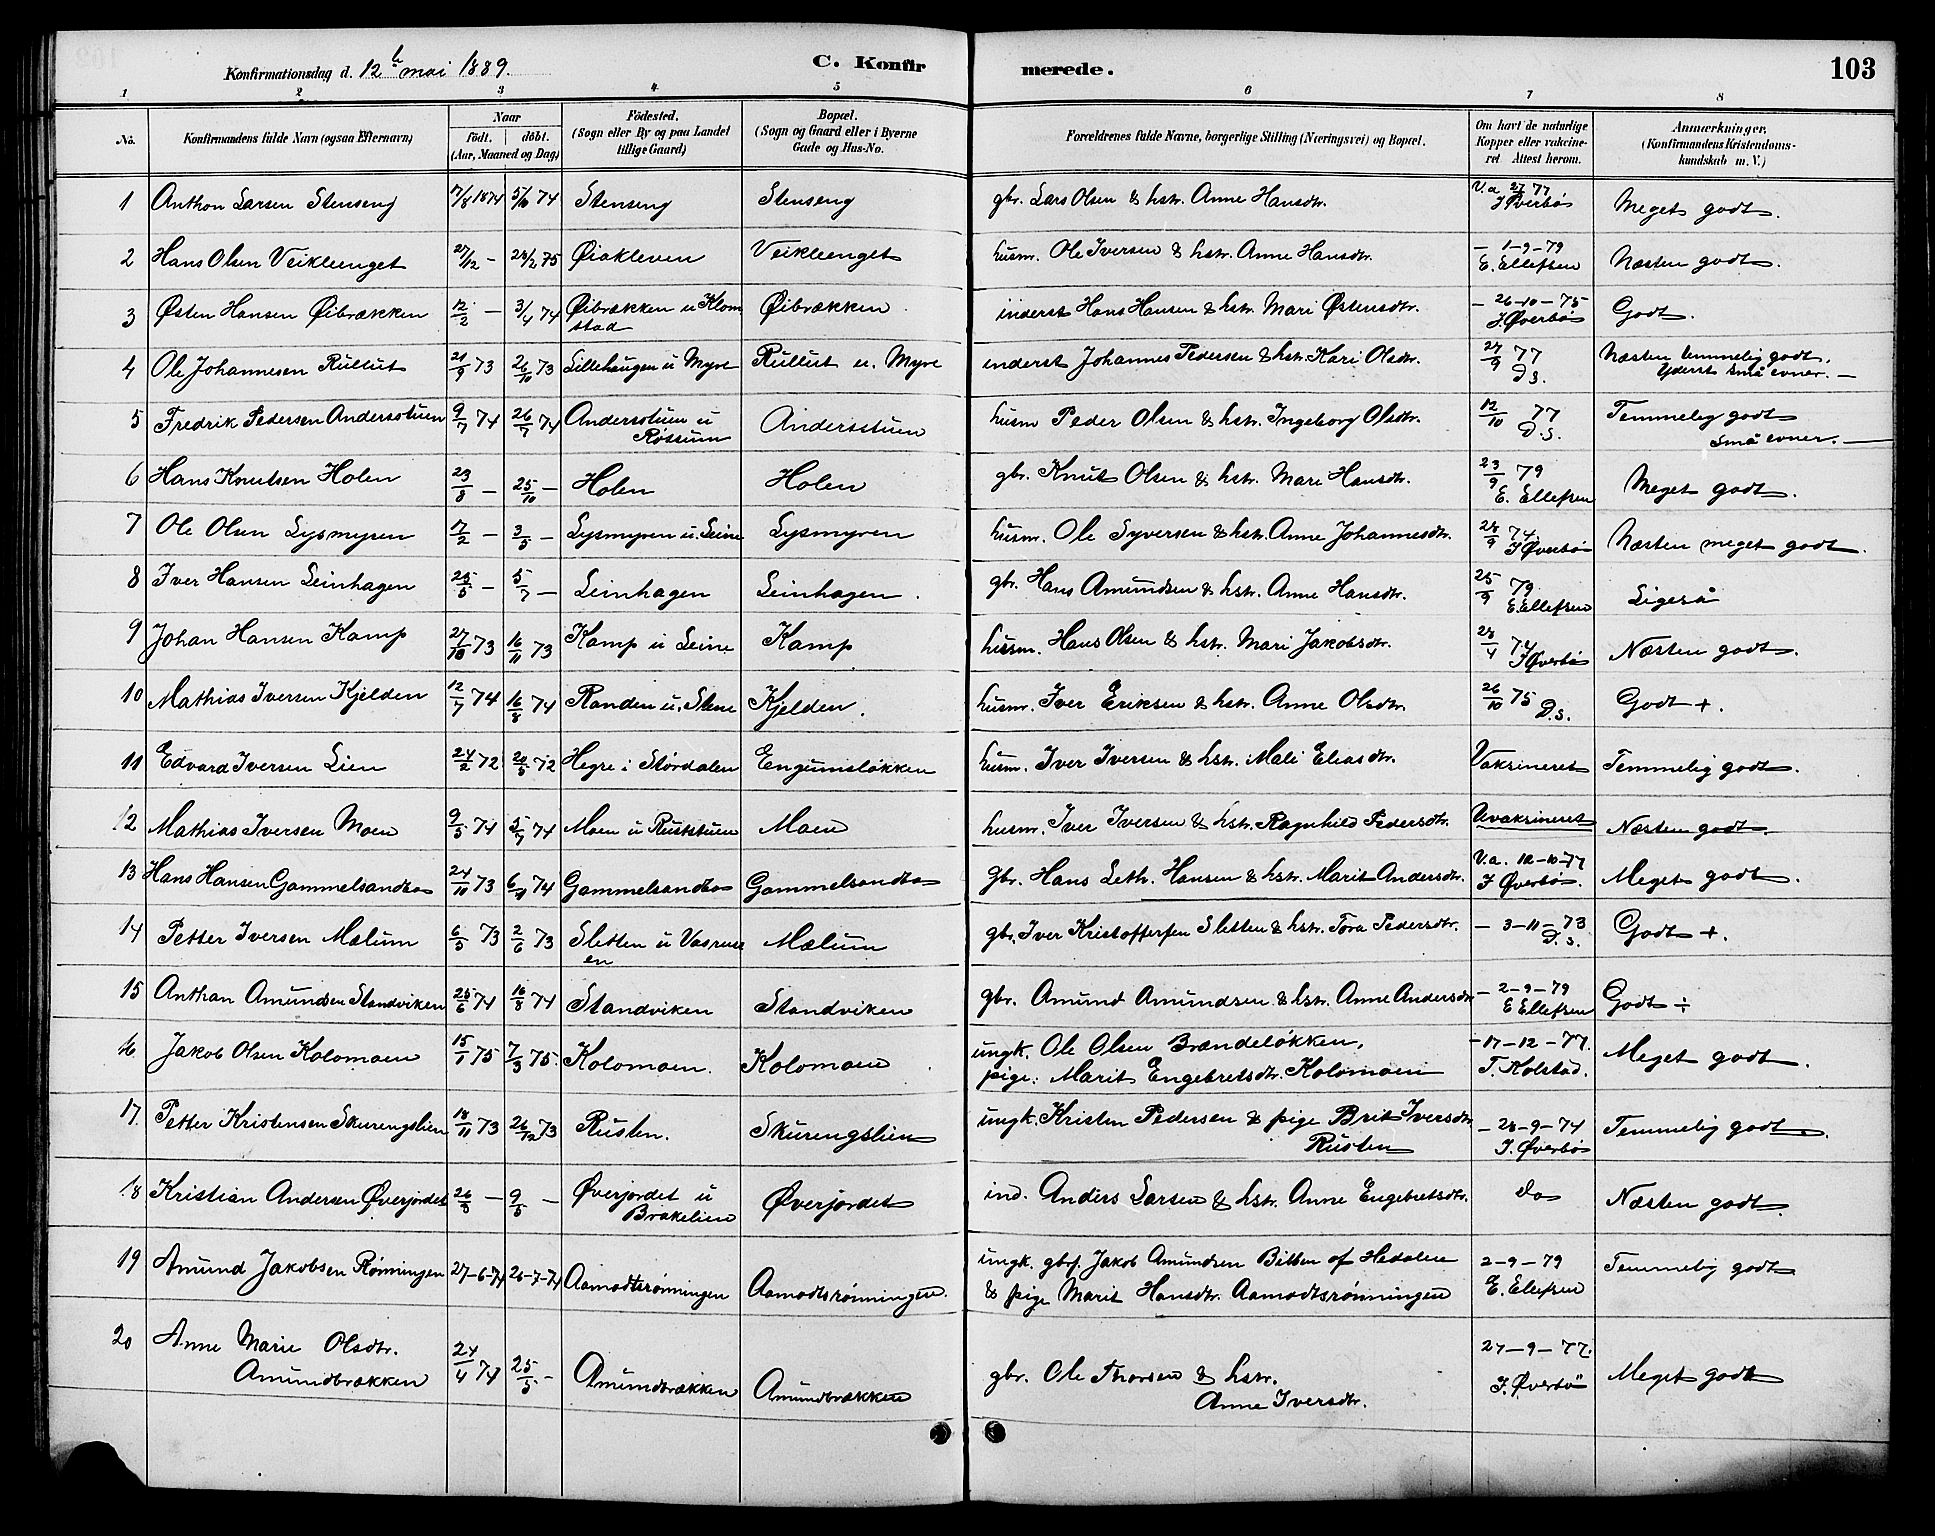 Konfirmationsdag d. 12te mai 1889. C. Konfirmerede. 103
1 2 3 4 5 6 7 8
No. Konfirmandens fulde Navn (ogsaa Efternavn) Naar født. døbt. (Aar, Maaned og Dag) Fødested. (Sogn eller By og paa Landet tillige Gaard) Bopæl. (Sogn og Gaard eller i Byerne Gade og Hus-No. Forældrenes fulde Navne, borgerlige Stilling (Næringsvei) og Bopæl. Om havt de naturlige Kopper eller vakcineret Attest herom. Anmærkninger. (Konfirmandens Kristendomskundskab m. V.)
1 Anthon Larsen Stenseng 7/8 1874 5/10 74 Stenseng Stenseng gbr. Lars Olsen & hstr. Anne Hansdtr. V.a 27/9 77 J Øverbø Meget godt.
2 Hans Olsen Veikleenget 27/12 - 28/2 75 Øiakleven Veikleenget husm. Ole Iversen & hstr. Anne Hansdtr. - 1-9-79 E. Ellefsen Næsten godt.
3 Østen Hansen Øibrækken 12/2 - 3/4 74 Øibrækken u Klomstad Øibrækken inderst Hans Hansen & hstr. Mari Østensdtr. - 26-10-75 J. Øverbø Godt.
4 Ole Johannesen Rullut 21/9 73 26/10 73 Lillehaugen u Myre Rullut u. Myre inderst Johannes Pedersen & hstr. Kari Olsdtr. 27/9 77 D.S. Næsten temmelig godt. Yderst små evner. -
5 Fredrik Pedersen Andersstuen 9/7 74 26/7 74 Andersstuen u Røssum Andersstuen husm Peder Olsen & hstr. Ingeborg Olsdtr. 12/10 77 D.S. Temmelig godt små evner. -
6 Hans Knutsen Holen 23/8 - 25/10 - Holen Holen gbr. Knut Olsen & hstr. Mari Hansdtr. 23/9 79 E. Ellefsen Meget godt.
7 Ole Olsen Lysmyren 17/2 - 3/5 - Lysmyren u. Leine Lysmyren husm. Ole Syversen & hstr. Anne Johannesdtr. 28/9 74 J Øverbø Næsten meget godt.
8 Iver Hansen Leinhagen 25/5 - 5/7 - Leinhagen Leinhagen. gbr. Hans Amundsen & hstr. Anne Hansdtr. 25/9 79 E. Ellefsen Ligeså
9 Johan Hansen Kamp 27/10 73 16/11 73 Kamp u Leine Kamp husm. Hans Olsen & hstr. Mari Jakobsdtr. 28/4 74 J Øverbø Næsten godt.
10 Mathias Iversen Kjelden 12/7 74 16/8 74 Randen u. Stene Kjelden. husm. Iver Eriksen & hstr. Anne Olsdtr. 26/10 75 D.S. Godt +.
11 Edvard Iversen Lien 24/2 72 20/5 72 Hegre i Størdalen Engumsløkken husm. Iver Iversen & hstr. Mali Eliasdtr. Vaksineret Temmelig godt.
12 Mathias Iversen Moen 9/5 74 5/7 74 Moen u Ruststuen Moen husm. Iver Iversen & hstr. Ragnhild Pedersdtr. Uvaksineret Næsten godt.
13 Hans Hansen Gammelsandbo 24/11 73 6/1 74 Gammelsandbo Gammelsandbo Gbr. Hans Leth. Hansen & hstr. Marit Andersdtr. V.a. 12-10-77 J Øverbø. Meget godt.
14 Petter Iversen Mælum 6/5 73 2/6 73 Sletten u Vasrusten Mælum gbr. Iver Kristoffersen Sletten & hstr. Tora Pedersdtr. - 3-11-73 D.S. Godt +.
15 Anthan Amundsen Standviken 25/6 74 16/8 74 Standviken Standviken gbr. Amund Amundsen & hstr. Anne Andersdtr - 2-9-79 E Ellefsen Godt ÷
16 Jakob Olsen Kolomoen 15/1 75 7/3 75. Kolomoen. Kolomoen ungk. Ole Olsen Brændeløkken, pige: Marit Engebretsdtr. Kolomoen - 17-12-77. T. Kolstad. Meget godt.
17. Petter Kristensen Skurengslien 18/11 73 26/12 73 Rusten. Skurengslien ungk. Kristen Pedersen & pige Brit Iversdtr Rusten - 28-9-74 J. Øverbø Temmelig godt.
18 Kristian Andersen Øverjordet 26/3 - 9/5 - Øverjordet u Brakelien Øverjordet ind. Anders Larsen & hstr. Anne Engebretsdtr. Do Næsten godt.
19 Amund Jakobsen Rønningen 27-6-74 26-7-74 Aamodtsrønningen Aamodtsrønningen. ungk. gbrs. Jakob Amundsen Bilben af Hedalen & pige Marit Hansdtr. Aamodtsrønningen 2-9-79 E. Ellefsen Temmelig godt
20 Anne Marie Olsdtr. Amundbrækken 24/4 74 25/5 - Amundbrækken Amundbrækken gbr. Ole Thorsen & hstr. Anne Iversdtr. 27-9-77. J. Øverbø Meget godt